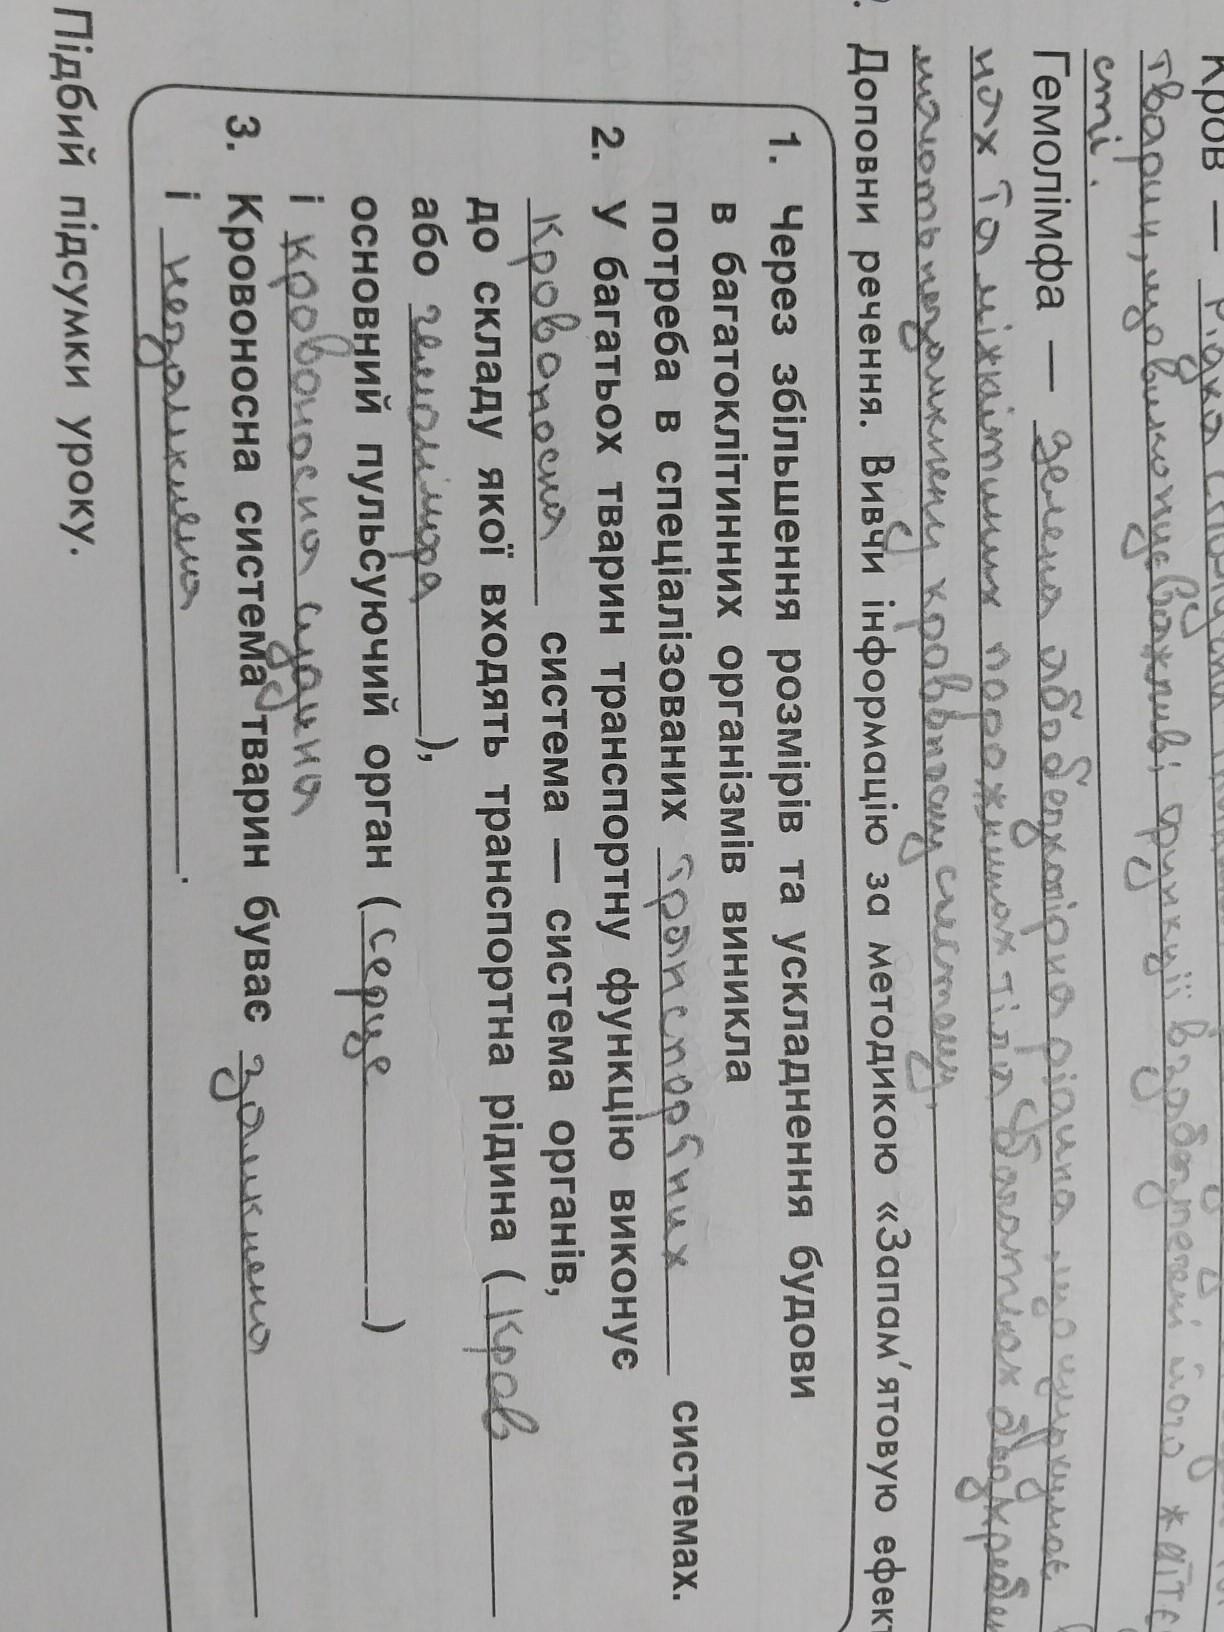 Кров — рідка
тварин, що виконує важливі функції в забезпеченні його життє
сті.
Гемолімфа — зелена або безколірна рідина, що циркулює
нах та міжклітинних порожнинах тіла багатьох безхребе
мають незамкнену кровоносну систему.
. Доповни речення. Вивчи інформацію за методикою «Запам’ятовую ефект
1. Через збільшення розмірів та ускладнення будови
в багатоклітинних організмів виникла
потреба в спеціалізованих транспортних системах.
2. У багатьох тварин транспортну функцію виконує
кровоносна система — система органів,
до складу якої входять транспортна рідина (кров
або гемолімфа),
основний пульсуючий орган (серце)
і кровоносна судина
3. Кровоносна система тварин буває замкнена
і незамкнена.
Підбий підсумки уроку.